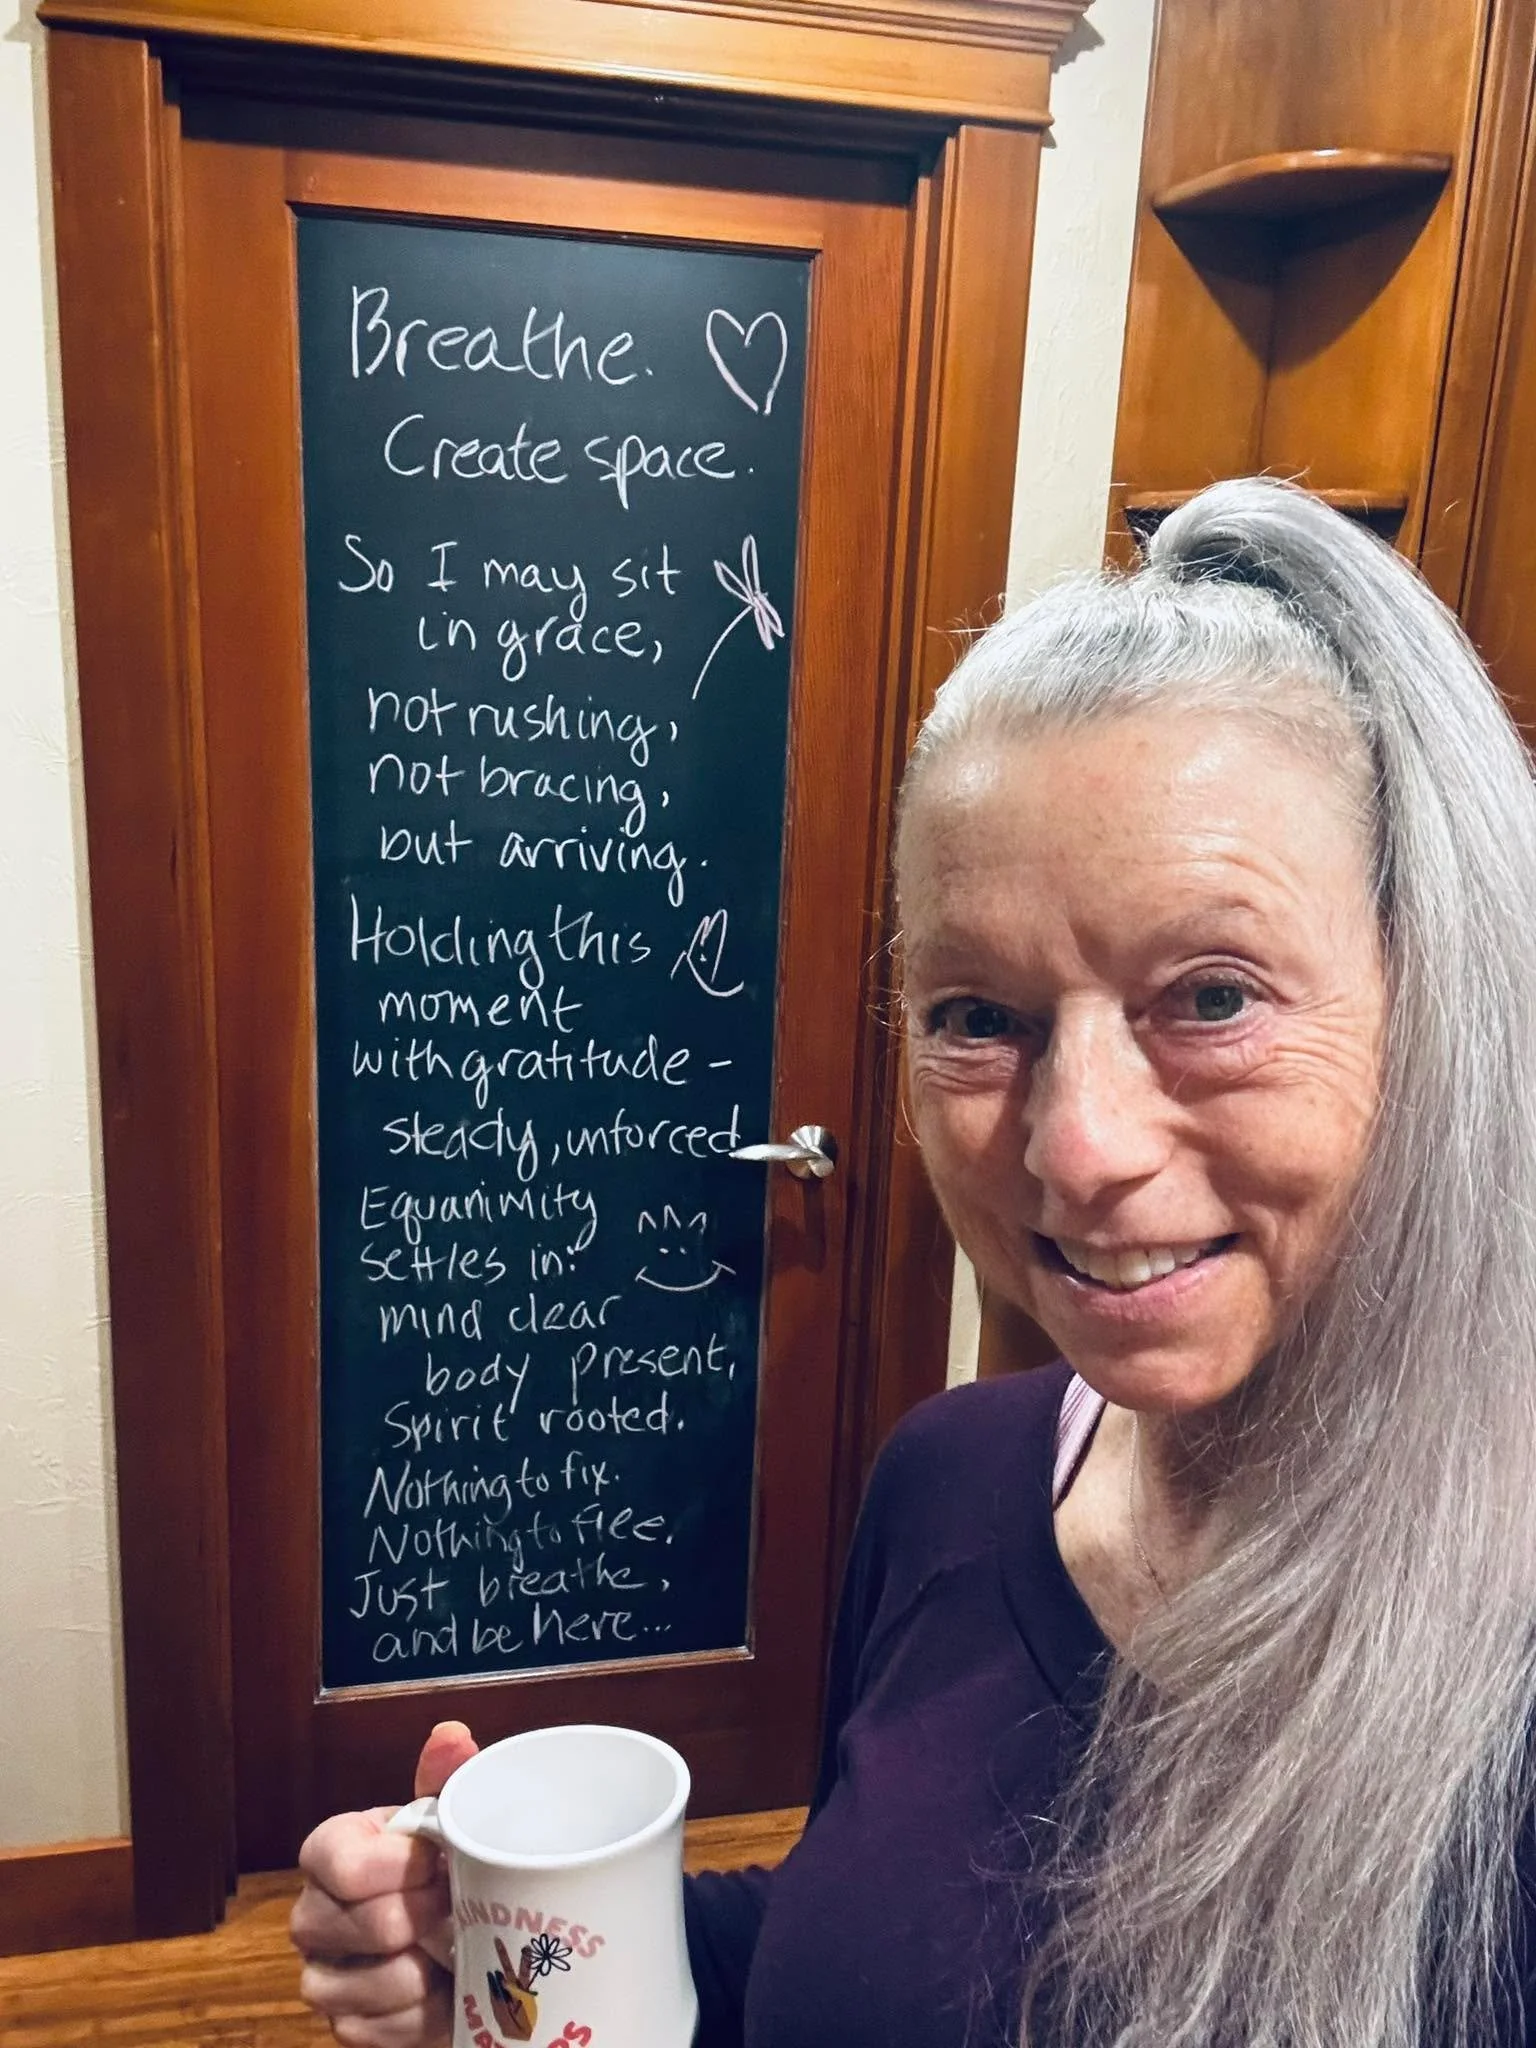 Breathe.
Create space.
So I may sit
in grace,
not rushing,
not bracing,
but arriving.
Holding this
moment
with gratitude -
steady, unforced
Equanimity
settles in:
mind clear
body present,
Spirit rooted.
Nothing to fix.
Nothing to flee.
Just breathe,
and be here...
KINDNESS
MATTERS